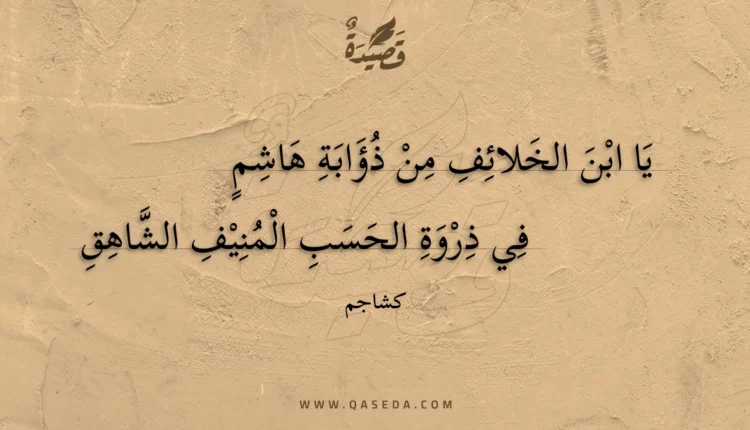 قَصِيْدَةٌ
يَا ابْنَ الخَلائِفِ مِنْ ذُؤَابَةِ هَاشِمٍ
فِي ذِرْوَةِ الحَسَبِ الْمُنِيْفِ الشَّاهِقِ
كشاجم
WWW.QASEDA.COM